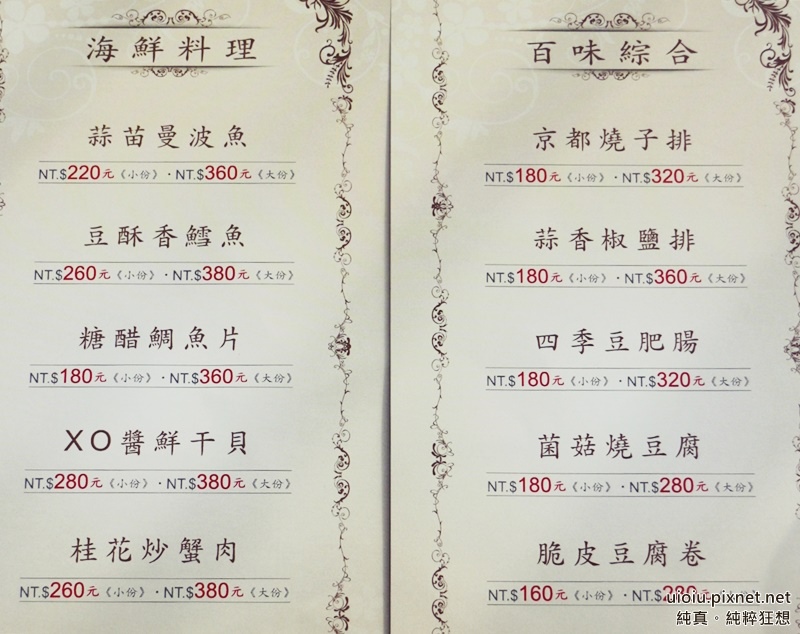 海鮮料理
蒜苗曼波魚
NT.$220元《小份》·NT.$360元《大份》
豆酥香鱈魚
NT.$260元《小份》·NT.$380元《大份》
糖醋鯛魚片
NT.$180元《小份》·NT.$360元《大份》
XO醬鮮干貝
NT.$280元《小份》·NT.$380元《大份》
桂花炒蟹肉
NT.$260元《小份》·NT.$380元《大份》
百味綜合
京都燒子排
NT.$180元《小份》·NT.$320元《大份》
蒜香椒鹽排
NT.$180元《小份》·NT.$360元《大份》
四季豆肥腸
NT.$180元《小份》·NT.$320元《大份》
菌菇燒豆腐
NT.$180元《小份》·NT.$280元《大份》
脆皮豆腐卷
NT.$160元《小份》·NT.$280元《大份》
uioiu.pixnet.net
純真。純粹狂想